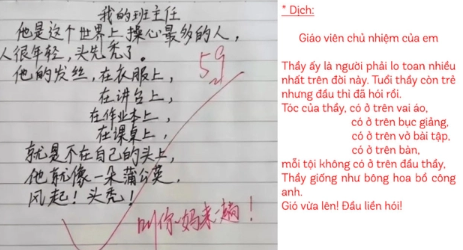 我的班主任
他是这个世界上操心最多的人，
人很年轻，头先秃了。
他的发丝，在衣服上，
在讲台上，
在作业本上，
在课桌上，
就是不在自己的头上，
他就像一朵蒲公英，
风起！头秃！
59
叫你妈来一趟！
* Dịch:
Giáo viên chủ nhiệm của em
Thầy ấy là người phải lo toan nhiều
nhất trên đời này. Tuổi thầy còn trẻ
nhưng đầu thì đã hói rồi.
Tóc của thầy, có ở trên vai áo,
có ở trên bục giảng,
có ở trên vở bài tập,
có ở trên bàn,
mỗi tội không có ở trên đầu thầy,
Thầy giống như bông hoa bồ công
anh.
Gió vừa lên! Đầu liền hói!